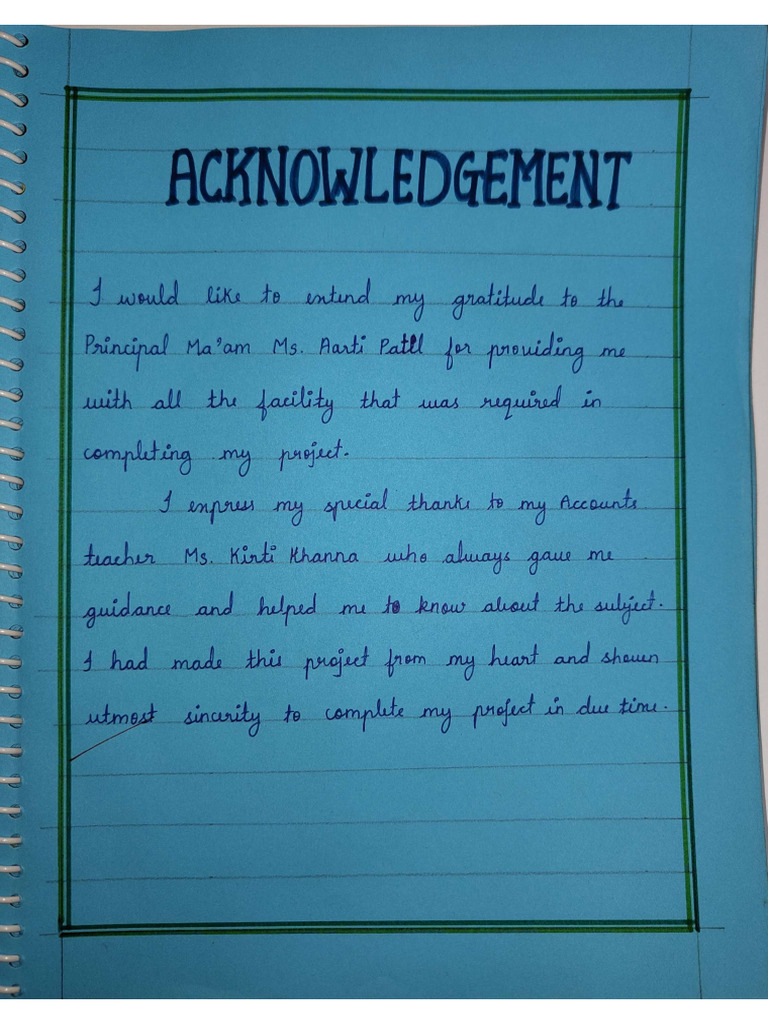 ACKNOWLEDGEMENT
I would like to extend my gratitude to the
Principal Ma'am Ms. Aarti Patil for providing me
with all the facility that was required in
completing my project.
I express my special thanks to my Accounts
teacher Ms. Kirti Khanna who always gave me
guidance and helped me to know about the subject.
I had made this project from my heart and shown
utmost sincerity to complete my project in due time.